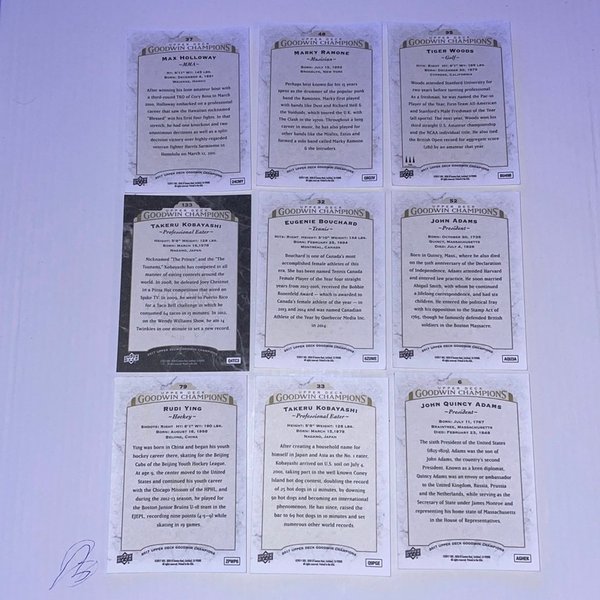 37
UPPER DECK
GOODWIN CHAMPIONS
MAX HOLLOWAY
~MMA~
After winning his lone amateur bout with
a third-round TKO of Cory Rosa in March
2010, Holloway embarked on a professional
career that saw the Hawaiian nicknamed
"Blessed" win his first four fights. In that
stretch, he had one knockout and two
unanimous decisions as well as a split
decision victory over highly-regarded
veteran fighter Harris Sarmiento in
Honolulu on March 12, 2011.
2017 UPPER DECK GOODWIN CHAMPIONS
48
UPPER DECK
GOODWIN CHAMPIONS
MARKY RAMONE
~Musician~
BROOKLYN, NEW YORK
Perhaps best known for his 15 years
spent as the drummer of the popular punk
band the Ramones, Marky first played
with bands like Dust and Richard Hell &
the Voidoids, which toured the U.K. with
The Clash in the 1970s. Throughout a long
career in music, he has also played for
other bands like the Misfits, Estus and
formed a solo band called Marky Ramone
& the Intruders.
2017 UPPER DECK GOODWIN CHAMPIONS
UPPER DECK
GOODWIN CHAMPIONS
TIGER WOODS
~Golf~
CYPRESS, CALIFORNIA
Woods attended Stanford University for
two seasons, beginning in 1994.
As a freshman, he was named the Pac-10
Player of the Year, First Team All-American
and Stanford's Male Freshman of the Year
(all sports). The next year, Woods won his
third straight U.S. Amateur championship
and the NCAA individual title. He also tied
the British Open record for aggregate score
(281) by an amateur that year.
2017 UPPER DECK GOODWIN CHAMPIONS
133
UPPER DECK
GOODWIN CHAMPIONS
TAKERU KOBAYASHI
~Professional Eater~
HEIGHT: 5'8" WEIGHT: 128 LBS.
BORN: MARCH 15, 1978
NAGANO, JAPAN
Nicknamed "The Prince" and the "The
Tsunami," Kobayashi has competed in all
manner of eating contests around the
world. In 2008, he defeated Joey Chestnut
in a Pizza Hut competition that aired on
Spike TV. In 2009, he went to Puerto Rico
for a Taco Bell challenge in which he
consumed 64 tacos in 15 minutes. In 2012,
on the Wendy Williams Show, he ate 14
Twinkies in one minute to set a new record.
2017 UPPER DECK GOODWIN CHAMPIONS
32
UPPER DECK
GOODWIN CHAMPIONS
EUGENIE BOUCHARD
~Tennis~
BORN: FEBRUARY 25, 1994
MONTREAL, CANADA
Bouchard is one of Canada's most
accomplished female athletes of this
era. She has been named Tennis Canada
Female Player of the Year four straight
years from 2013-2016, received the Bobbie
Rosenfeld Award — which is awarded to
Canada's female athlete of the year — in
2013 and 2014 and was named Canadian
Athlete of the Year by Quebecor Media Inc.
in 2014.
2017 UPPER DECK GOODWIN CHAMPIONS
52
UPPER DECK
GOODWIN CHAMPIONS
JOHN ADAMS
~President~
BORN: OCTOBER 30, 1735
QUINCY, MASSACHUSETTS
DIED: JULY 4, 1826
Born in Quincy, Mass., where he also died
on the 50th anniversary of the Declaration
of Independence, Adams attended Harvard
and entered law practice. He soon married
Abigail Smith, with whom he continued
a lifelong correspondence, and had six
children. He entered the political fray
with his opposition to the Stamp Act of
1765, though he famously defended British
soldiers in the Boston Massacre.
2017 UPPER DECK GOODWIN CHAMPIONS
79
UPPER DECK
GOODWIN CHAMPIONS
RUDI YING
~Hockey~
BORN: AUGUST 16, 1998
BEIJING, CHINA
Ying was born in China and began his youth
hockey career there, skating for the Beijing
Cubs of the Beijing Youth Hockey League.
At age 9, the center moved to the United
States and continued his youth career
with the Chicago Mission of the HPHL, and
during the 2012-13 season, he played for
the Boston Junior Bruins U-18 team in the
EJEPL, recording nine points (4-5—9) while
skating in 19 games.
2017 UPPER DECK GOODWIN CHAMPIONS
33
UPPER DECK
GOODWIN CHAMPIONS
TAKERU KOBAYASHI
~Professional Eater~
HEIGHT: 5'8" WEIGHT: 128 LBS.
BORN: MARCH 15, 1978
NAGANO, JAPAN
After creating a household name for
himself in Japan and Asia as the No. 1 eater,
Kobayashi arrived on U.S. soil on July 4,
2001, taking part in the well known Coney
Island hot dog contest, doubling the record
of 25 hot dogs in 12 minutes, by downing
50 hot dogs and becoming an international
phenomenon. He has, since, raised the
bar to 69 hot dogs in 10 minutes and set
numerous other world records.
2017 UPPER DECK GOODWIN CHAMPIONS
6
UPPER DECK
GOODWIN CHAMPIONS
JOHN QUINCY ADAMS
~President~
BORN: JULY 11, 1767
BRAINTREE, MASSACHUSETTS
DIED: FEBRUARY 23, 1848
The sixth President of the United States
(1825-1829), Adams was the son of
John Adams, the country's second
President. Known as a keen diplomat,
Quincy Adams was an envoy or ambassador
to the United Kingdom, Russia, Prussia
and the Netherlands, while serving as the
Secretary of State under James Monroe and
representing his home state of Massachusetts
in the House of Representatives.
2017 UPPER DECK GOODWIN CHAMPIONS